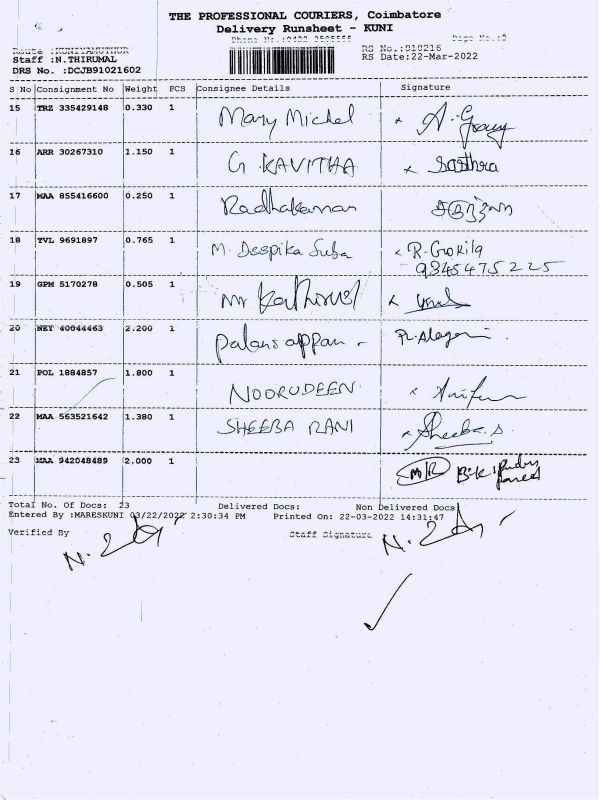 THE PROFESSIONAL COURIERS, Coimbatore
Delivery Runsheet - KUNI
Phone No.:0422 Page No.:2
Route :KUNIYAMUTHUR RS No.:910216
Staff :N.THIRUMAL RS Date:22-Mar-2022
DRS No. :DCJB91021602
S No Consignment No Weight PCS Consignee Details Signature
15 TRZ 335429148 0.330 1 Mary Michel x A.
16 ARR 30267310 1.150 1 G. KAVITHA x
17 MAA 855416600 0.250 1
18 TVL 9691897 0.765 1 M. Deepika Suba x R. Gokila
9845475225
19 GPM 5170278 0.505 1 Mr x
20 NET 40044463 2.200 1 Palaniappan -
21 POL 1884857 1.800 1 NOORUDEEN x
22 MAA 563521642 1.380 1 SHEEBA RANI x Sheeba.S
23 MAA 942048489 2.000 1 M/R
Total No. Of Docs: 23 Delivered Docs: Non Delivered Docs
Entered By :MARESKUNI 03/22/2022 2:30:34 PM Printed On: 22-03-2022 14:31:47
Verified By Staff Signature